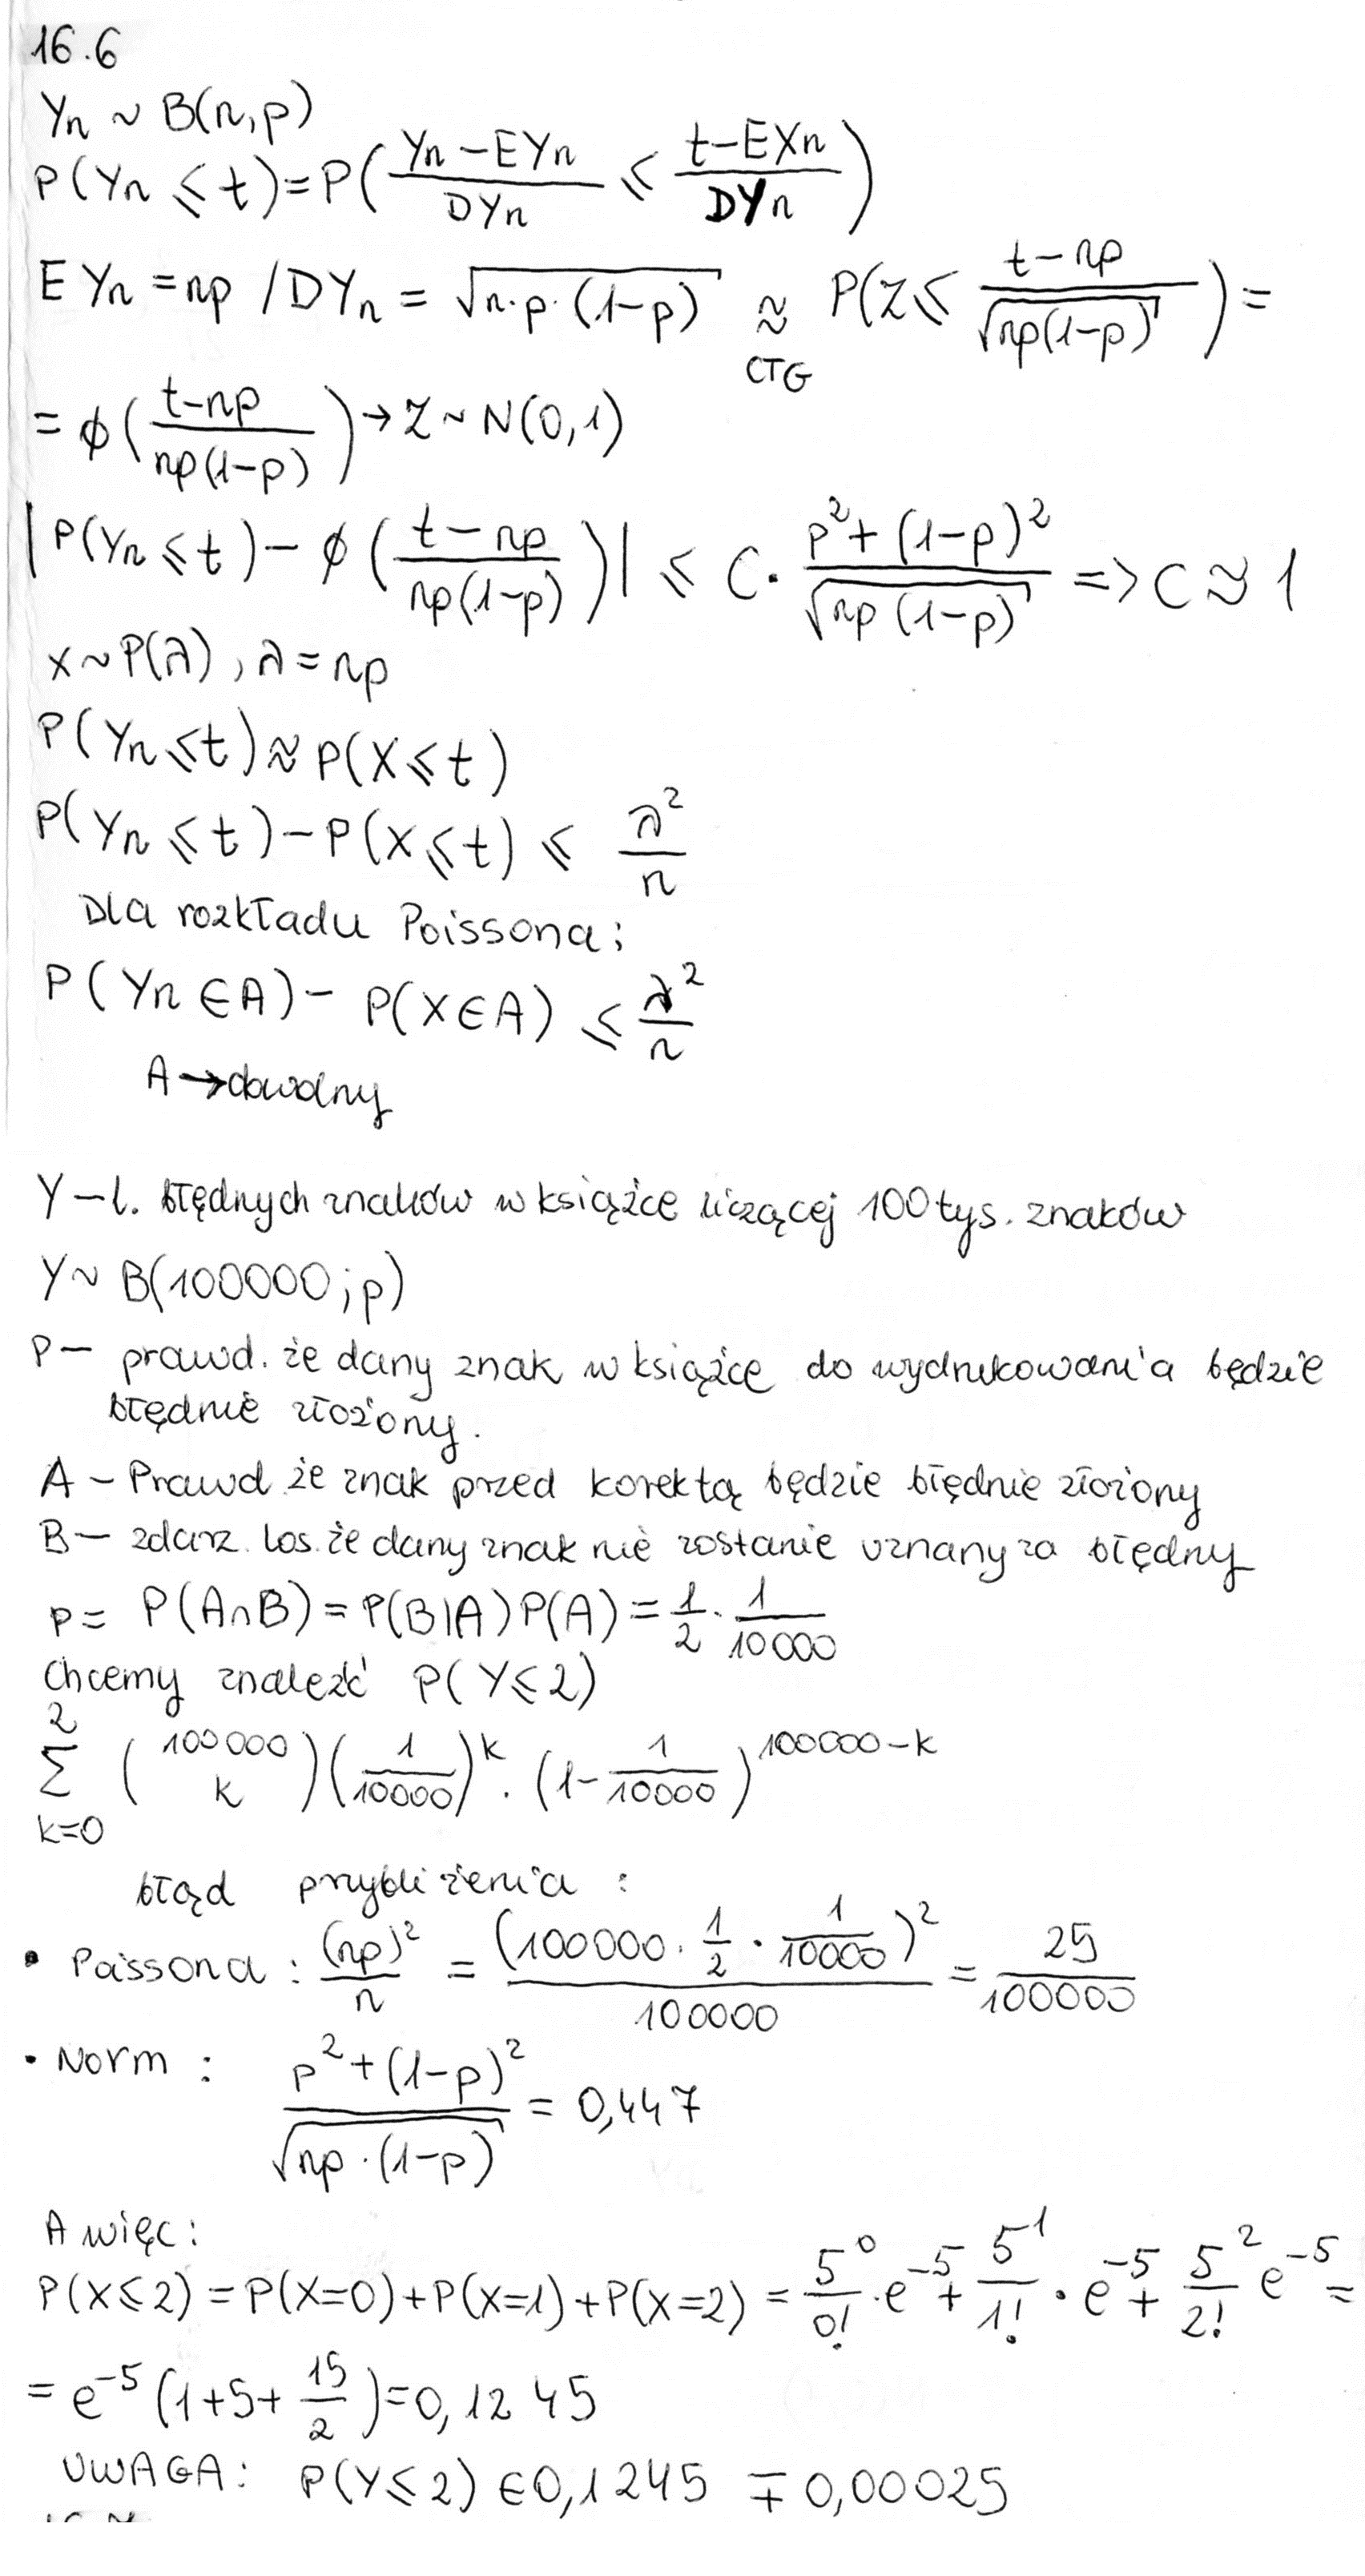 16.6
Yn ~ B(n,p)
P(Yn ⩽ t) = P( (Yn − EYn)/(DYn) ⩽ (t − EXn)/(DYn) )
EYn = np / DYn = √(n·p·(1−p)) ≈ CTG P(Z ⩽ (t − np)/√(np(1−p)) ) =
= ϕ( (t−np)/(np(1−p)) ) → Z ~ N(0,1)
| P(Yn ⩽ t) − ϕ( (t − np)/(np(1−p)) ) | ⩽ C · (p² + (1−p)²)/√(np(1−p)) => C ≈ 1
X ~ P(λ), λ = np
P(Yn ⩽ t) ≈ P(X ⩽ t)
P(Yn ⩽ t) − P(X ⩽ t) ⩽ λ²/n
Dla rozkładu Poissona:
P(Yn ∈ A) − P(X ∈ A) ⩽ λ²/n
A → dowolny
Y − l. błędnych znaków w książce liczącej 100 tys. znaków
Y ~ B(100000; p)
P − prawd. że dany znak w książce do wydrukowania będzie
błędnie złożony.
A − Prawd że znak przed korektą będzie błędnie złożony
B − zdarz. los. że dany znak nie zostanie uznany za błędny
p = P(A∩B) = P(B|A) P(A) = 1/2 · 1/10000
Chcemy znaleźć P(Y ⩽ 2)
2 Σ k=0 (100000 k) (1/10000)^k · (1 − 1/10000)^100000−k
błąd przybliżenia :
• Poissona : (np)²/n = (100000 · 1/2 · 1/10000)²/100000 = 25/100000
• Norm : (p² + (1−p)²)/√(np·(1−p)) = 0,447
A więc:
P(X ⩽ 2) = P(X=0) + P(X=1) + P(X=2) = 5⁰/0! · e⁻⁵ + 5¹/1! · e⁻⁵ + 5²/2! e⁻⁵ =
= e⁻⁵ (1+5+ 15/2) = 0,1245
UWAGA: P(Y ⩽ 2) ∈ 0,1245 ∓ 0,00025